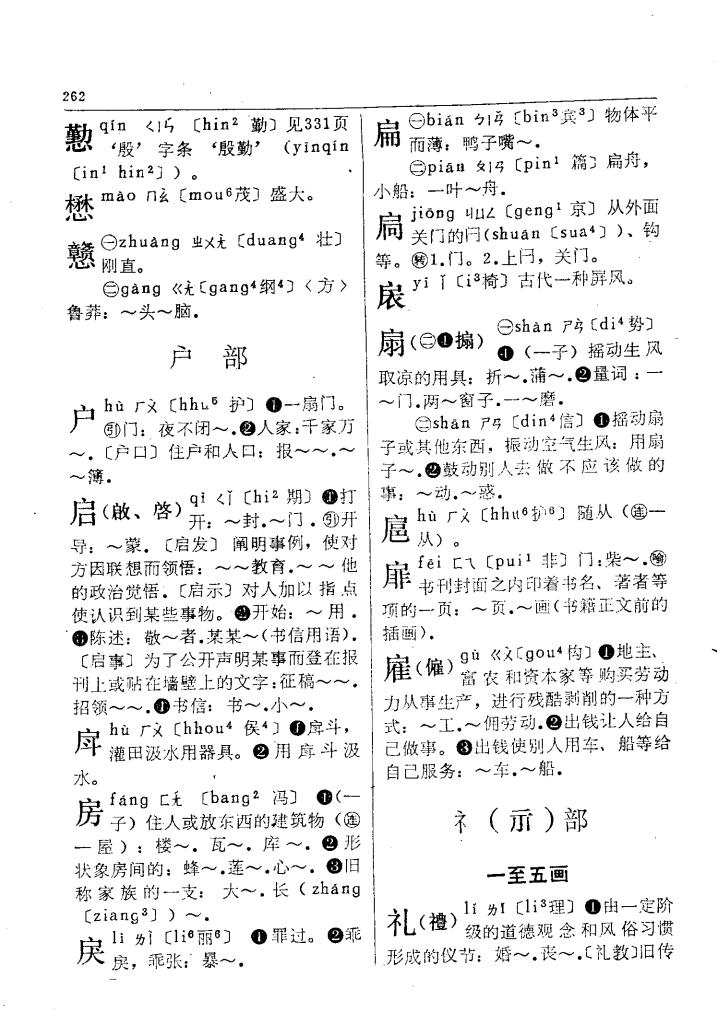 262
懃 qín ㄑㄧㄣˊ〔hin² 勤〕见331页
‘殷’字条‘殷勤’(yīnqín
〔in¹ hin²〕)。
懋 mào ㄇㄠˋ〔mou⁶茂〕盛大。
戆 ㊀zhuàng ㄓㄨㄤˋ〔duang⁴ 壮〕
刚直。
㊁gàng ㄍㄤˋ〔gang⁴纲⁴〕〈方〉
鲁莽：～头～脑。
户部
户 hù ㄏㄨˋ〔hhu⁶ 护〕❶一扇门。
㊕门：夜不闭～.❷人家：千家万
～.〔户口〕住户和人口：报～～.～
～簿.
启(啟、啓) qǐ ㄑㄧˇ〔hi² 期〕❶打
开：～封.～门.㊕开
导：～蒙.〔启发〕阐明事例，使对
方因联想而领悟：～～教育.～～他
的政治觉悟.〔启示〕对人加以指点
使认识到某些事物。❷开始：～用.
❸陈述：敬～者.某某～(书信用语).
〔启事〕为了公开声明某事而登在报
刊上或贴在墙壁上的文字：征稿～～.
招领～～.❹书信：书～.小～.
戽 hù ㄏㄨˋ〔hhou⁴ 侯⁴〕❶戽斗，
灌田汲水用器具。❷用戽斗汲
水。
房 fáng ㄈㄤˊ〔bang² 冯〕❶(一
子)住人或放东西的建筑物(㊝
一屋)：楼～.瓦～.库～.❷形
状象房间的：蜂～.莲～.心～.❸旧
称家族的一支：大～.长(zhǎng
〔ziang³〕)～.
戾 lì ㄌㄧˋ〔li⁶丽⁶〕❶罪过。❷乖
戾，乖张：暴～.
扁 ㊀biǎn ㄅㄧㄢˇ〔bin³宾³〕物体平
而薄：鸭子嘴～.
㊁piān ㄆㄧㄢ〔pin¹ 篇〕扁舟，
小船：一叶～舟.
扃 jiōng ㄐㄩㄥ〔geng¹ 京〕从外面
关门的闩(shuān〔sua⁴〕)、钩
等。㊕1.门。2.上闩，关门。
扆 yǐ ㄧˇ〔i³椅〕古代一种屏风。
扇(㊁❶搧) ㊀shàn ㄕㄢˋ〔di⁴势〕
❶(一子)摇动生风
取凉的用具：折～.蒲～.❷量词：一
～门.两～窗子.一～磨.
㊁shān ㄕㄢ〔din⁴信〕❶摇动扇
子或其他东西，振动空气生风：用扇
子～.❷鼓动别人去做不应该做的
事：～动.～惑.
扈 hù ㄏㄨˋ〔hhu⁶护⁶〕随从(㊝一
从)。
扉 fēi ㄈㄟ〔pui¹ 非〕门：柴～.㊕
书刊封面之内印着书名、著者等
项的一页：～页.～画(书籍正文前的
插画).
雇(僱) gù ㄍㄨˋ〔gou⁴构〕❶地主、
富农和资本家等购买劳动
力从事生产，进行残酷剥削的一种方
式：～工.～佣劳动.❷出钱让人给自
己做事。❸出钱使别人用车、船等给
自己服务：～车.～船.
礻(示)部
一至五画
礼(禮) lǐ ㄌㄧˇ〔li³理〕❶由一定阶
级的道德观念和风俗习惯
形成的仪节：婚～.丧～.〔礼教〕旧传